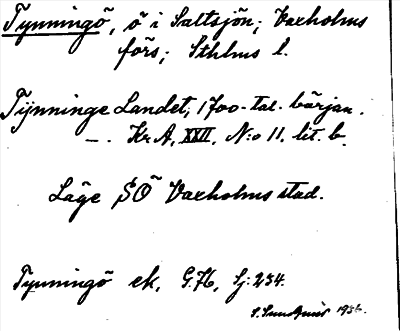 Tynningö, ö i Saltsjön; Vaxholms
förs; Sthlms l.
Tÿnninge Landet, 1700-tal. början.
— . Kr A, XXII, N:o 11. lit. b.
Läge SO Vaxholms stad.
Tynningö ek, G.76, Sj: 234.
S. Sundquist 1936.